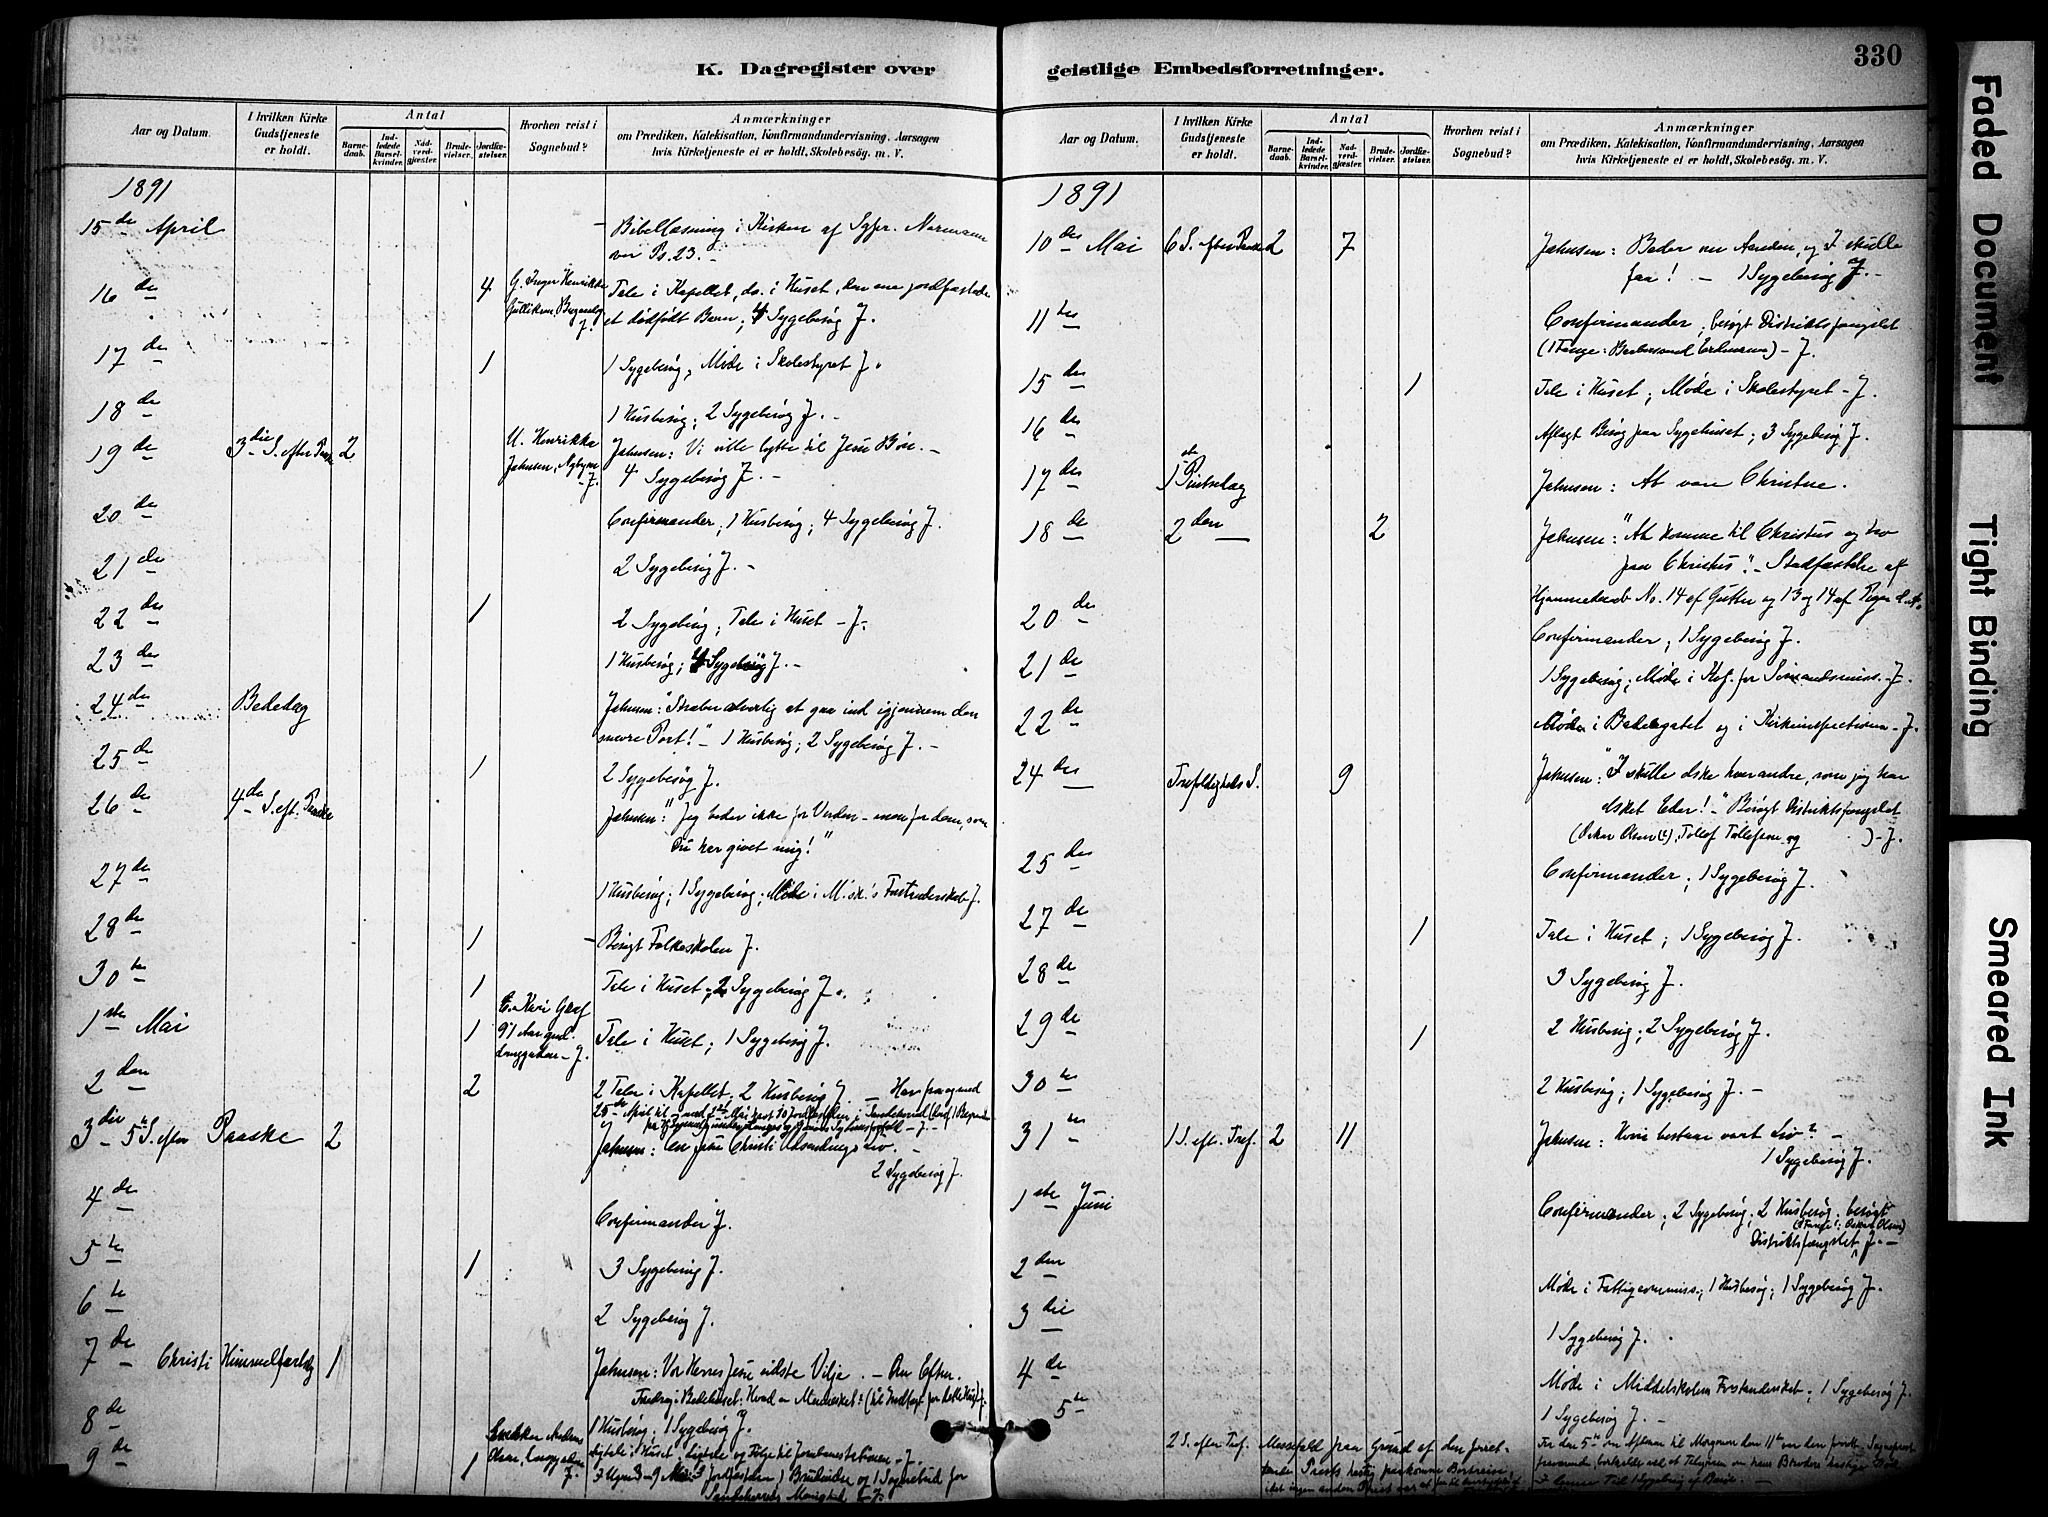 330
K. Dagregister over
geistlige Embedsforretninger.
Aar og Datum.
I hvilken Kirke Gudstjeneste er holdt.
Antal
Barnedaab.
Indledede Barselkvinder.
Nadverdgjæster.
Brudevielser.
Jordfæstelser.
Hvorhen reist i Sognebud?
Anmærkninger
om Prædiken, Katekisation, Konfirmandundervisning, Aarsagen
hvis Kirketjeneste ei er holdt, Skolebesög. m. V.
1891
15de April - Bibellæsning i Kirken af Sgpr. Normann
over Ps. 23. -
16de 4 G. Inger Henrikke Tale i Kapellet, do. i Huset, den ene jordfæstede
et dødfødt Barn; 4 Sygebesøg J.
17de 1 1 Sygebesøg, Møde i Skolestyret J.
18de 1 Husbesøg; 2 Sygebesøg J. -
19de 3die S. efter Paaske 2 U. Henrikke Jahnsen: Vi ville lytte til Jesu Bøn. -
Jahnsen, Nybyen J. 4 Sygebesøg J. -
20de Confirmander; 1 Husbesøg; 4 Sygebesøg J.
21de 2 Sygebesøg J. -
22de 1 2 Sygebesøg; Tale i Huset - J.
23de 1 Husbesøg; 4 Sygebesøg J. -
24de Bededag Jahnsen: "Stræber alvorlig at gaa ind igjennem den
snevre Port!" - 1 Husbesøg; 2 Sygebesøg J. -
25de 1 2 Sygebesøg J.
26de 4de S. eft. Paaske Jahnsen: "Jeg beder ikke for Verden - men for dem, som
Du har givet mig!"
27de 1 Husbesøg; 1 Sygebesøg; Møde i M.sk.'s Forstanderskab J.
28de 1 - Besøgt Folkeskolen J.
30te 1 Tale i Huset; 2 Sygebesøg J.
1ste Mai 1 91 Aar gml. Tale i Huset; 1 Sygebesøg J.
2den 2 2 Taler i Kapellet; 2 Husbesøg J. - Har fra og med
25de April til og med 2den Mai havt 10 Jordfæstelser
3die 5te S. efter Paaske 2 Jahnsen: Om Jesu Christi
2 Sygebesøg J.
4de Confirmander J.
5te 1 3 Sygebesøg J.
6te 2 Sygebesøg J.
7de Christi Himmelfartsdag 1 Jahnsen: Vor Herres Jesu sidste Vilje. - Om Efterm.
Foredrag i Bedehuset: Hvad er Mennesket?
8de 1 Husbesøg; 1 Sygebesøg J.
9de 1 Olsen, Langgaden J.
1891
10de Mai 6 S. efter Paaske 2 7 Jahnsen: Beder om Aanden, og I skulle
faa! - 1 Sygebesøg J. -
11te Confirmander; besøgt Distriktsfængslet
(1 Fange: ) - J.
15de 1 Tale i Huset; Møde i Skolestyret - J.
16de Aflagt Besøg paa Sygehuset; 3 Sygebesøg J.
17de 1ste Pintsedag Jahnsen: At være Christne.
18de 2den - 2 Jahnsen: "At komme til Christus og tro
paa Christus". - Stadfæstelse af
Hjemmedaab No. 14 af Gutter og 13 og 14 af Piger
20de Confirmander; 1 Sygebesøg J.
21de 1 Sygebesøg; Møde i Kof. for Sømandsmiss. - J.
22de Møder i Baderegatet og i Kirkeinspectionen - J.
24de Trefoldigheds S. 9 Jahnsen: "I skulle elske hverandre, som jeg har
elsket Eder!" - Besøgt Distriktsfængslet
(Oskar Olsen, Tollef Tollefsen og ) - J.
25de Confirmander; 1 Sygebesøg J.
27de 1 Tale i Huset; 1 Sygebesøg J.
28de 3 Sygebesøg J.
29de 1 2 Husbesøg; 2 Sygebesøg J.
30te 2 Husbesøg; 1 Sygebesøg J. -
31te 1 S. eft. Tref. 2 11 Jahnsen: Hvori bestaar vort Liv? -
1 Sygebesøg J.
1ste Juni Confirmander; 2 Sygebesøg; 2 Husbesøg; besøgt
(1 Fange: Oskar Olsen)
Distriktsfængslet J. -
2den Møde i Fattigcommiss.; 1 Husbesøg; 1 Sygebesøg J.
3die 1 Sygebesøg J.
4de Møde i Middelskolens Forstanderskab; 1 Sygebesøg J.
5te 1 Sygebesøg J. -
2 S. efter Tref. Messefald paa Grund af den
Faded Document
Tight Binding
Smeared Ink